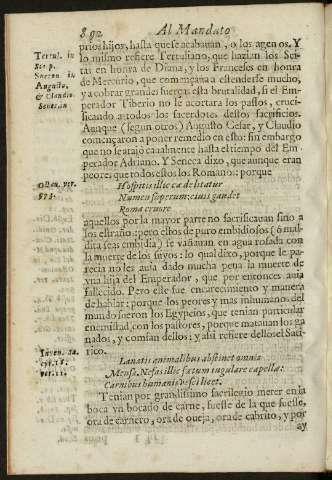 892 Al Mandato
prios hijos, hasta que se acabauan, o los agenos. Y
lo mismo refiere Tertuliano, que hazian los Sci-
tas en honra de Diana, y los Franceses en honra
de Mercurio, que començaua a estenderse mucho,
y a cobrar grandes fuerças esta brutalidad, si el Em-
perador Tiberio no le acortara los passos, cruci-
ficando a todos los sacerdotes destos sacrificios.
Aunque (segun otros) Augusto Cesar, y Claudio
començaron a poner remedio en esto: sin embargo
que no se atajò caualmente hasta el tiempo del Em-
perador Adriano. Y Seneca dixo, que aunque eran
peores que todos estos los Romanos: porque
Hospitis illic cæde litatur
Numen superum: ciuis gaudet
Roma cruore
aquellos por la mayor parte no sacrificauan sino a
los estraños: pero estos de puro embidiosos (o mal-
dita seas embidia) se vañauan en agua rosada con
la muerte de los suyos: lo qual dixo, porque le pa-
recia no les auia dado mucha pena la muerte de
vna hija del Emperador, que por entonces auia
fallecido. Pero este fue encarecimiento y manera
de hablar: porque los peores y mas inhumanos del
mundo fueron los Egypcios, que tenian particular
enemistad con los pastores, porque matauan los ga-
nados, y comian dellos: y assi refiere dellos el Sati-
rico.
Lanatis animalibus abstinet omnis
Mensa. Nefas illic fœtum iugulare capellæ:
Carnibus humanis vesci licet.
Tenian por grandissimo sacrilegio meter en la
boca vn bocado de carne, fuesse de la que fuesse,
ora de carnero, ora de oueja, ora de cabrito, y por
ay
Tertul. in
August.
& Claudio
Octau. ver.
Iuuen. sa.
ver. 11.